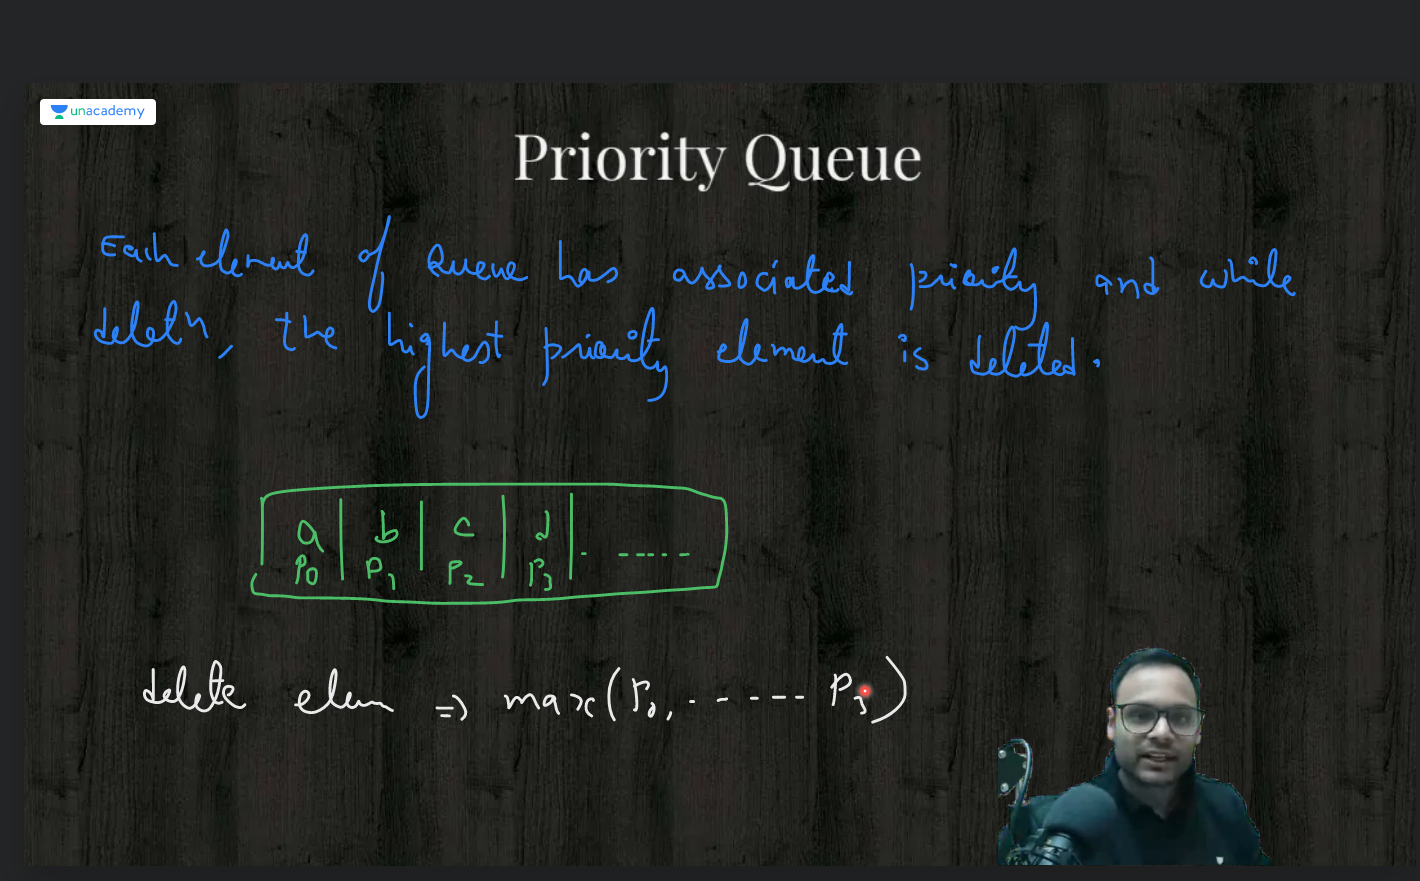 unacademy
Priority Queue
Each element of Queue has associated priority and while
deletn, the highest priority element is deleted.
a b c d . -----
P0 P1 P2 P3
delete elem => max(P0, . - - - - - P3)